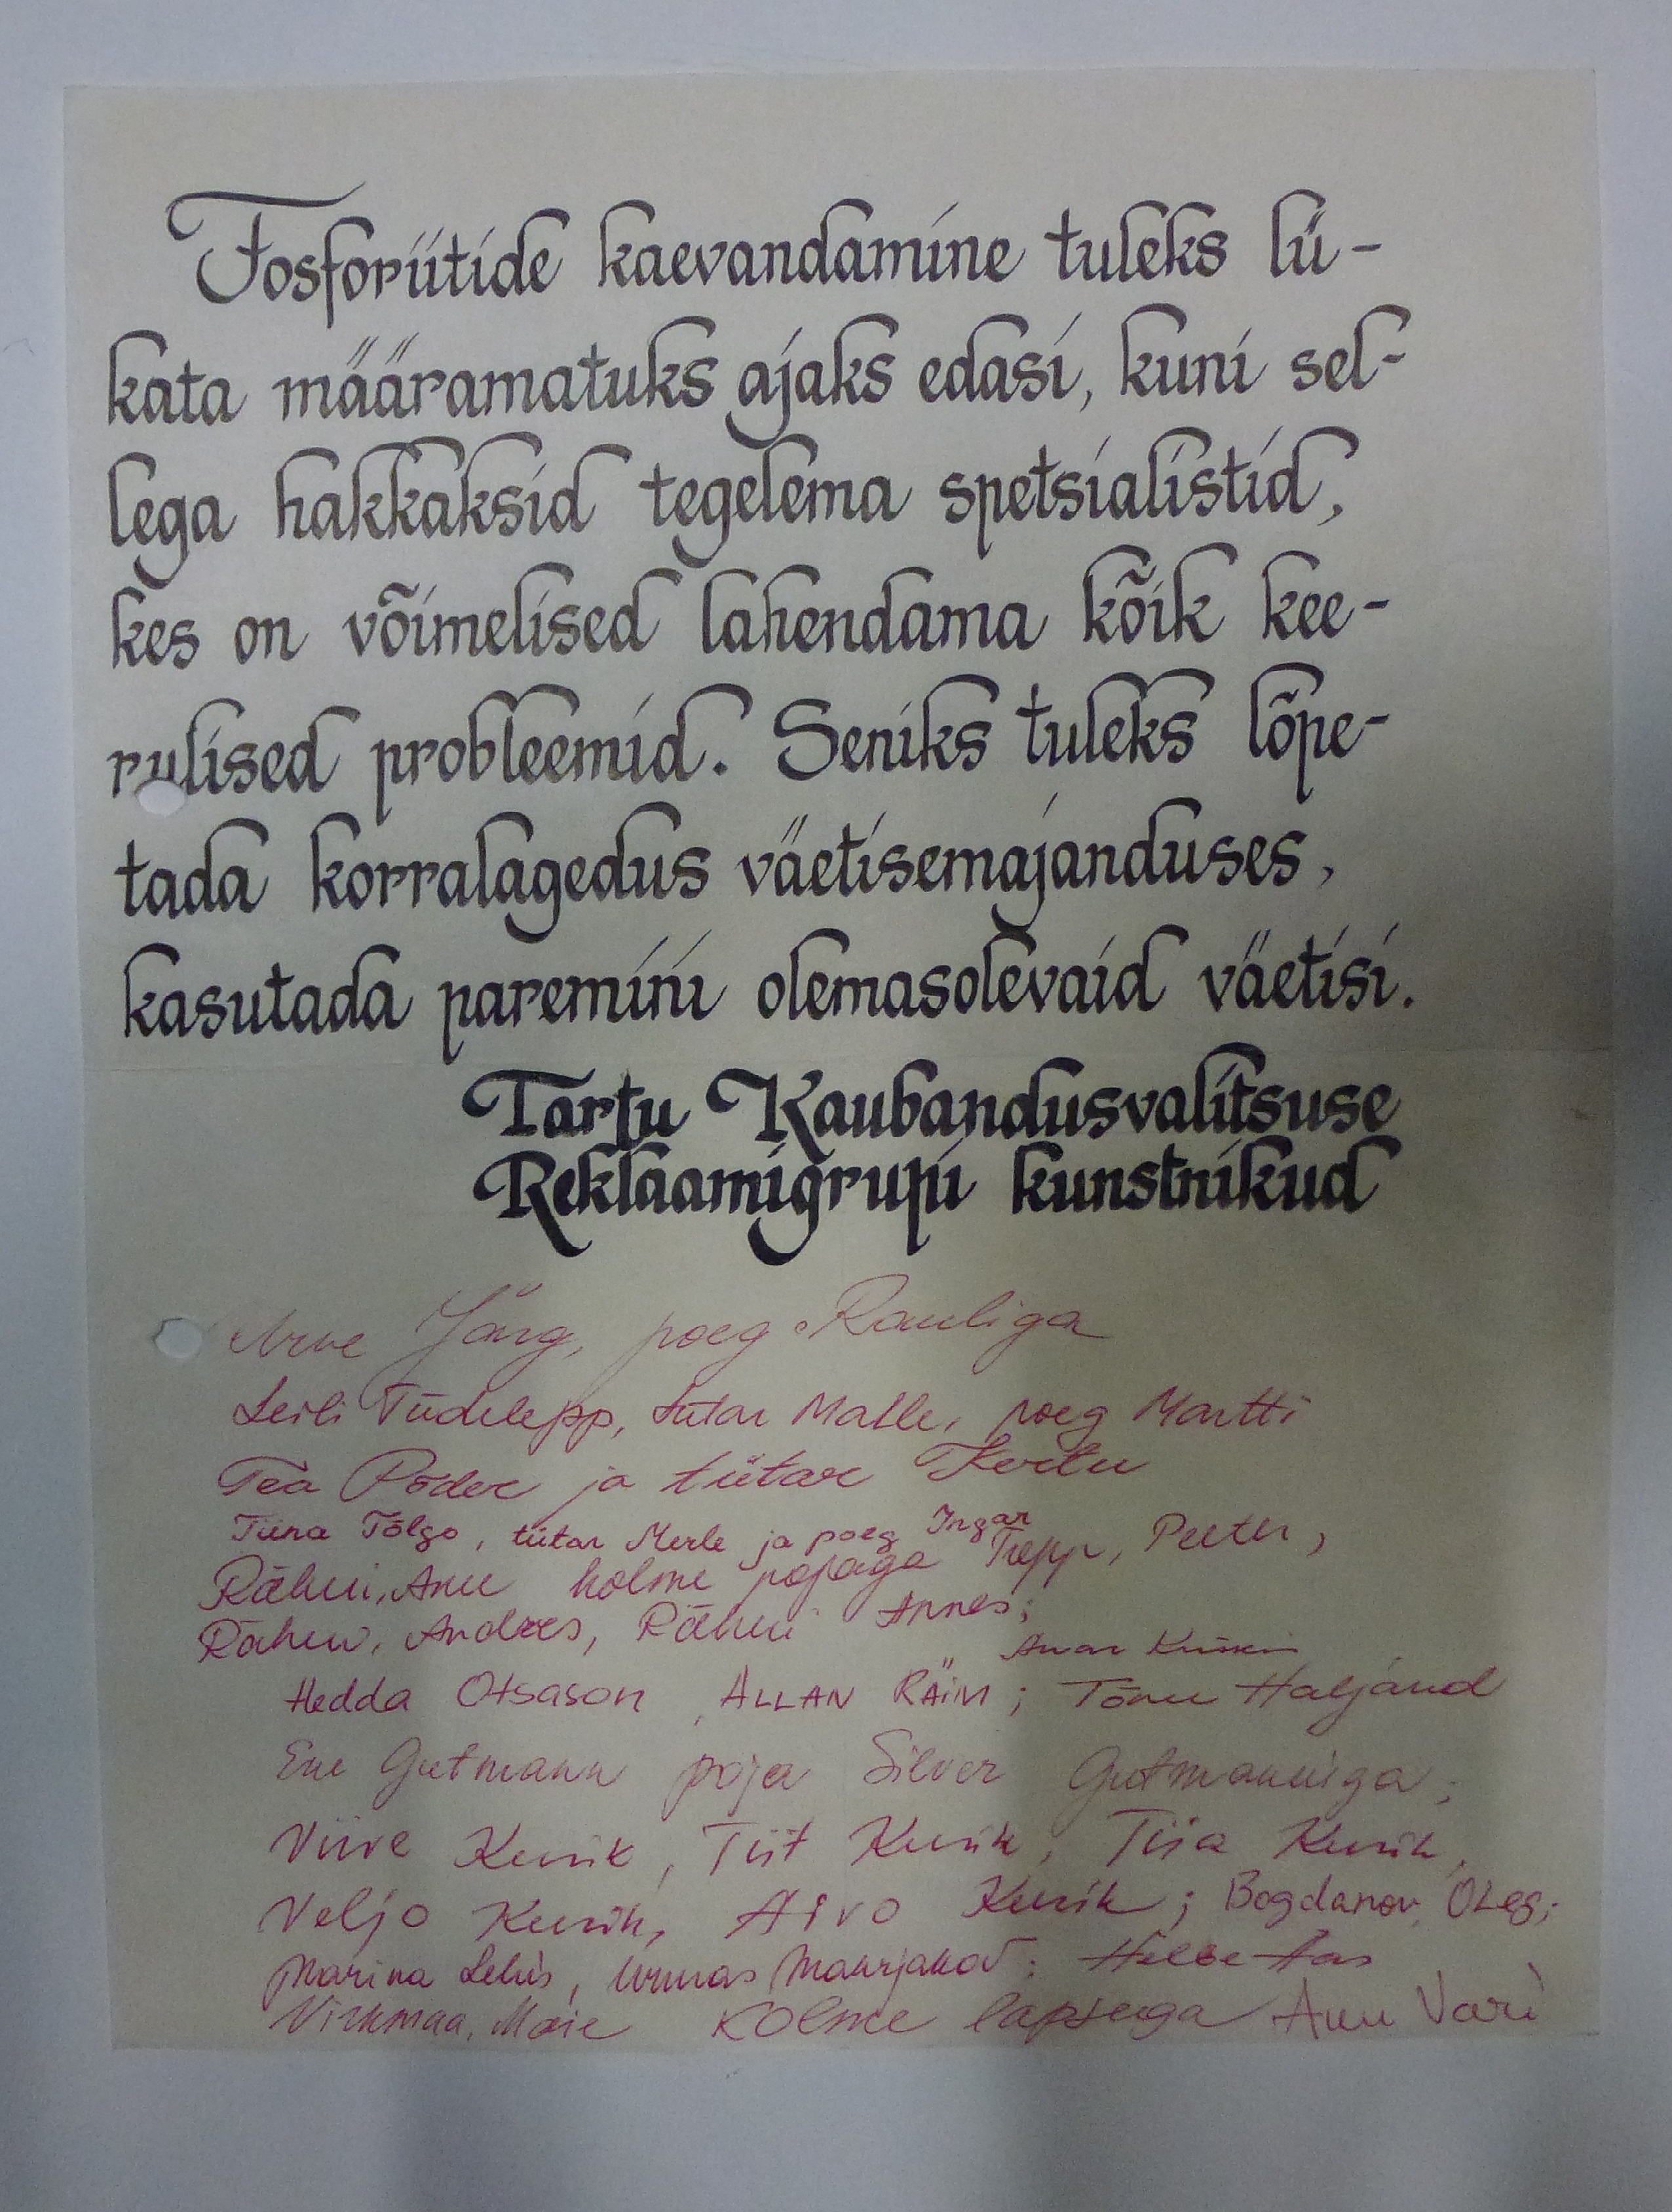 Fosforiitide kaevandamine tuleks lü-
kata määramatuks ajaks edasi, kuni sel-
lega hakkaksid tegelema spetsialistid,
kes on võimelised lahendama kõik kee-
rulised probleemid. Seniks tuleks lõpe-
tada korralagedus väetisemajanduses,
kasutada paremini olemasolevaid väetisi.
Tartu Kaubandusvalitsuse
Reklaamigrupi kunstnikud
Arve Järg, poeg Rauliga
Leili Tiidelepp, tütar Malle, poeg Martti
Tea Põder ja tütar Kertu
Tiina Tõlgo, tütar Merle ja poeg Ingar
Rähni, Anu kolme pojaga Trepp, Peeter,
Rähni, Andres, Rähni Annes;
Hedda Otsason, ALLAN RÄIM; Tõnu Haljand
Ene Gutmann poja Silver Gutmanniga;
Viive Kurik, Tiit Kurik, Tiia Kurik,
Veljo Kurik, Aivo Kurik; Bogdanov, Oleg;
Marina Lehis, Urmas
Virkmaa, Maie kolme lapsega Anu Vari